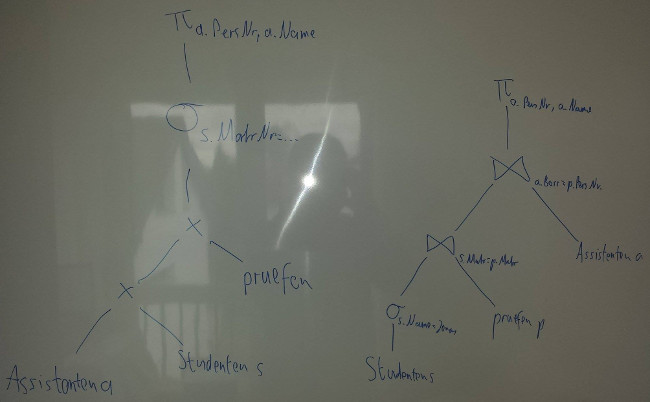 π a.PersNr, a.Name
σ s.MatrNr=...
×
pruefen
×
Assistenten a
Studenten s
π a.PersNr, a.Name
⋈ a.Boss=p.PersNr.
⋈ s.Matr=p.Matr
Assistenten a
σ s.Name=Jonas
pruefen p
Studenten s